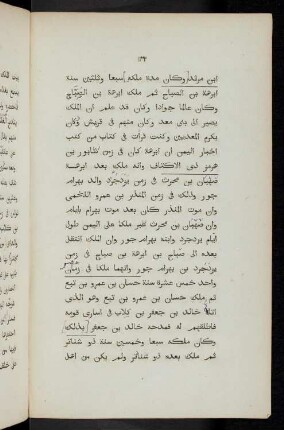 ١٣٤
ابن مرثد وكان مدة ملكه سبعا وثلثين سنة
ابرهة بن الصباح ثم ملك ابرهة بن الصباح
وكان عالما جوادا وكان قد علم ان الملك
يصير الى بنى معد وكان منهم فى قريش وكان
يكرم المعديين وكنت قرات فى كتاب من كتب
اخبار اليمن ان ابرهة كان فى زمن سابور بن
هرمز ذى الاكتاف وانه ملك بعد ابرهة
بن محرث فى زمن يزدجرد والد بهرام
جور وذلك فى زمن المنذر بن عمرو اللخمى
وان موت المنذر كان بعد موت بهرام بايام
وان بن محرث ملكا على اليمن طول
ايام يزدجرد وابنه بهرام جور وان الملك انتقل
بعده الى صباح بن ابرهة بن صباح فى زمن
يزدجرد بن بهرام جور وانهما ملكا فى زمان
واحد خمس عشرة سنة حسان بن عمرو بن تبع
ثم ملك حسان بن عمرو بن تبع وهو الذى
اتاه خالد بن جعفر بن كلاب فى اسارى قومه
فاطلقهم له فمدحه خالد بن جعفر بذلك
وكان ملكه سبعا وخمسين سنة ذو شناتر
ثم ملك بعده ذو شناتر ولم يكن من اهل